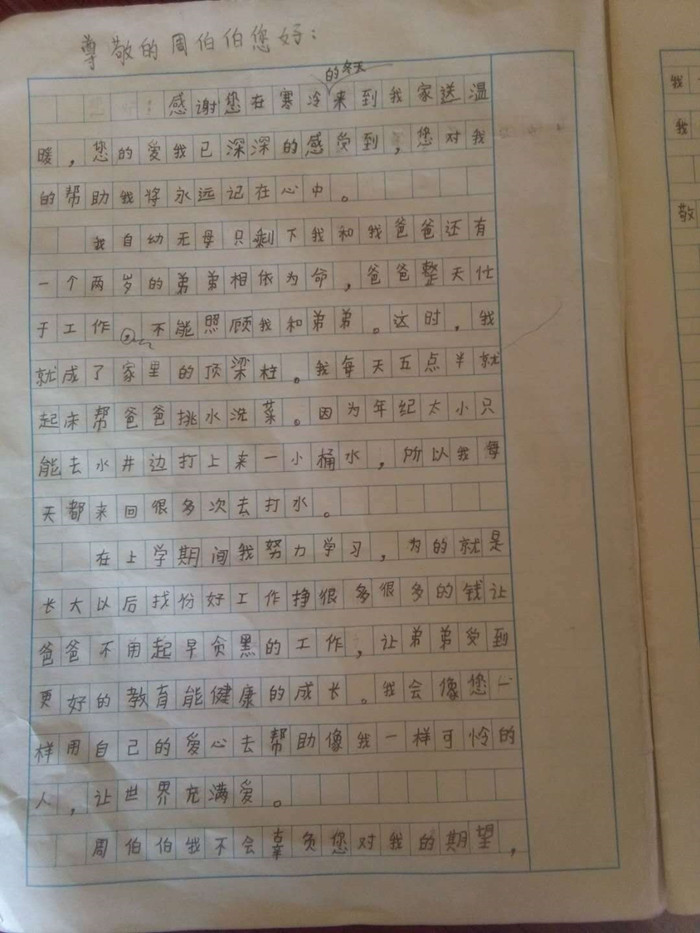 尊敬的周伯伯您好：
的冬天
：感谢您在寒冷来到我家送温
暖，您的爱我已深深的感受到，您对我
的帮助我将永远记在心中。
我自幼无母只剩下我和我爸爸还有
一个两岁的弟弟相依为命，爸爸整天忙
于工作，不能照顾我和弟弟。这时，我
就成了家里的顶梁柱。我每天五点半就
起床帮爸爸挑水洗菜。因为年纪太小只
能去水井边打上来一小桶水，所以我每
天都来回很多次去打水。
在上学期间我努力学习，为的就是
长大以后找份好工作挣很多很多的钱让
爸爸不用起早贪黑的工作，让弟弟受到
更好的教育能健康的成长。我会像您一
样用自己的爱心去帮助像我一样可怜的
人，让世界充满爱。
周伯伯我不会辜负您对我的期望，
我
我
敬